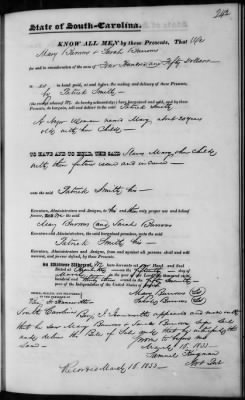 242
State of South-Carolina.
KNOW ALL MEN by these Presents, That We
Mary Burrows & Sarah Burrows
for and in consideration of the sum of Two Hundred and Fifty Dollars
to us in hand paid, at and before the sealing and delivery of these Presents,
by Patrick Smith
(the receipt whereof We do hereby acknowledge) have bargained and sold, and by these
Presents, do bargain, sell and deliver to the said Patrick Smith
A Negro Woman named Mary, about 20 years
old, with her Child
TO HAVE AND TO HOLD, THE SAID Slave Mary, & her Child
with their future issue and increase
unto the said Patrick Smith, his
Executors, Administrators and Assigns, to his and their only proper use and behoof
forever. And We the said
Mary Burrows and Sarah Burrows
Executors and Administrators, the said bargained premises, unto the said
Patrick Smith his
Executors, Administrators and Assigns, from and against all persons shall and will
warrant, and forever defend, by these Presents.
In Witness Whereof, We have hereunto set our Hand and Seal
Dated at on the fifteenth day of
in the year of our Lord one thousand eight
hundred and and in the year of the
Independence of the United States of America.
Mary Burrows
Sarah Burrows
South Carolina
that he saw Mary Burrows & Sarah Burrows sign, seal
and deliver the Bill of Sale
before me
March 16. 1833
Recorded March 16 1833